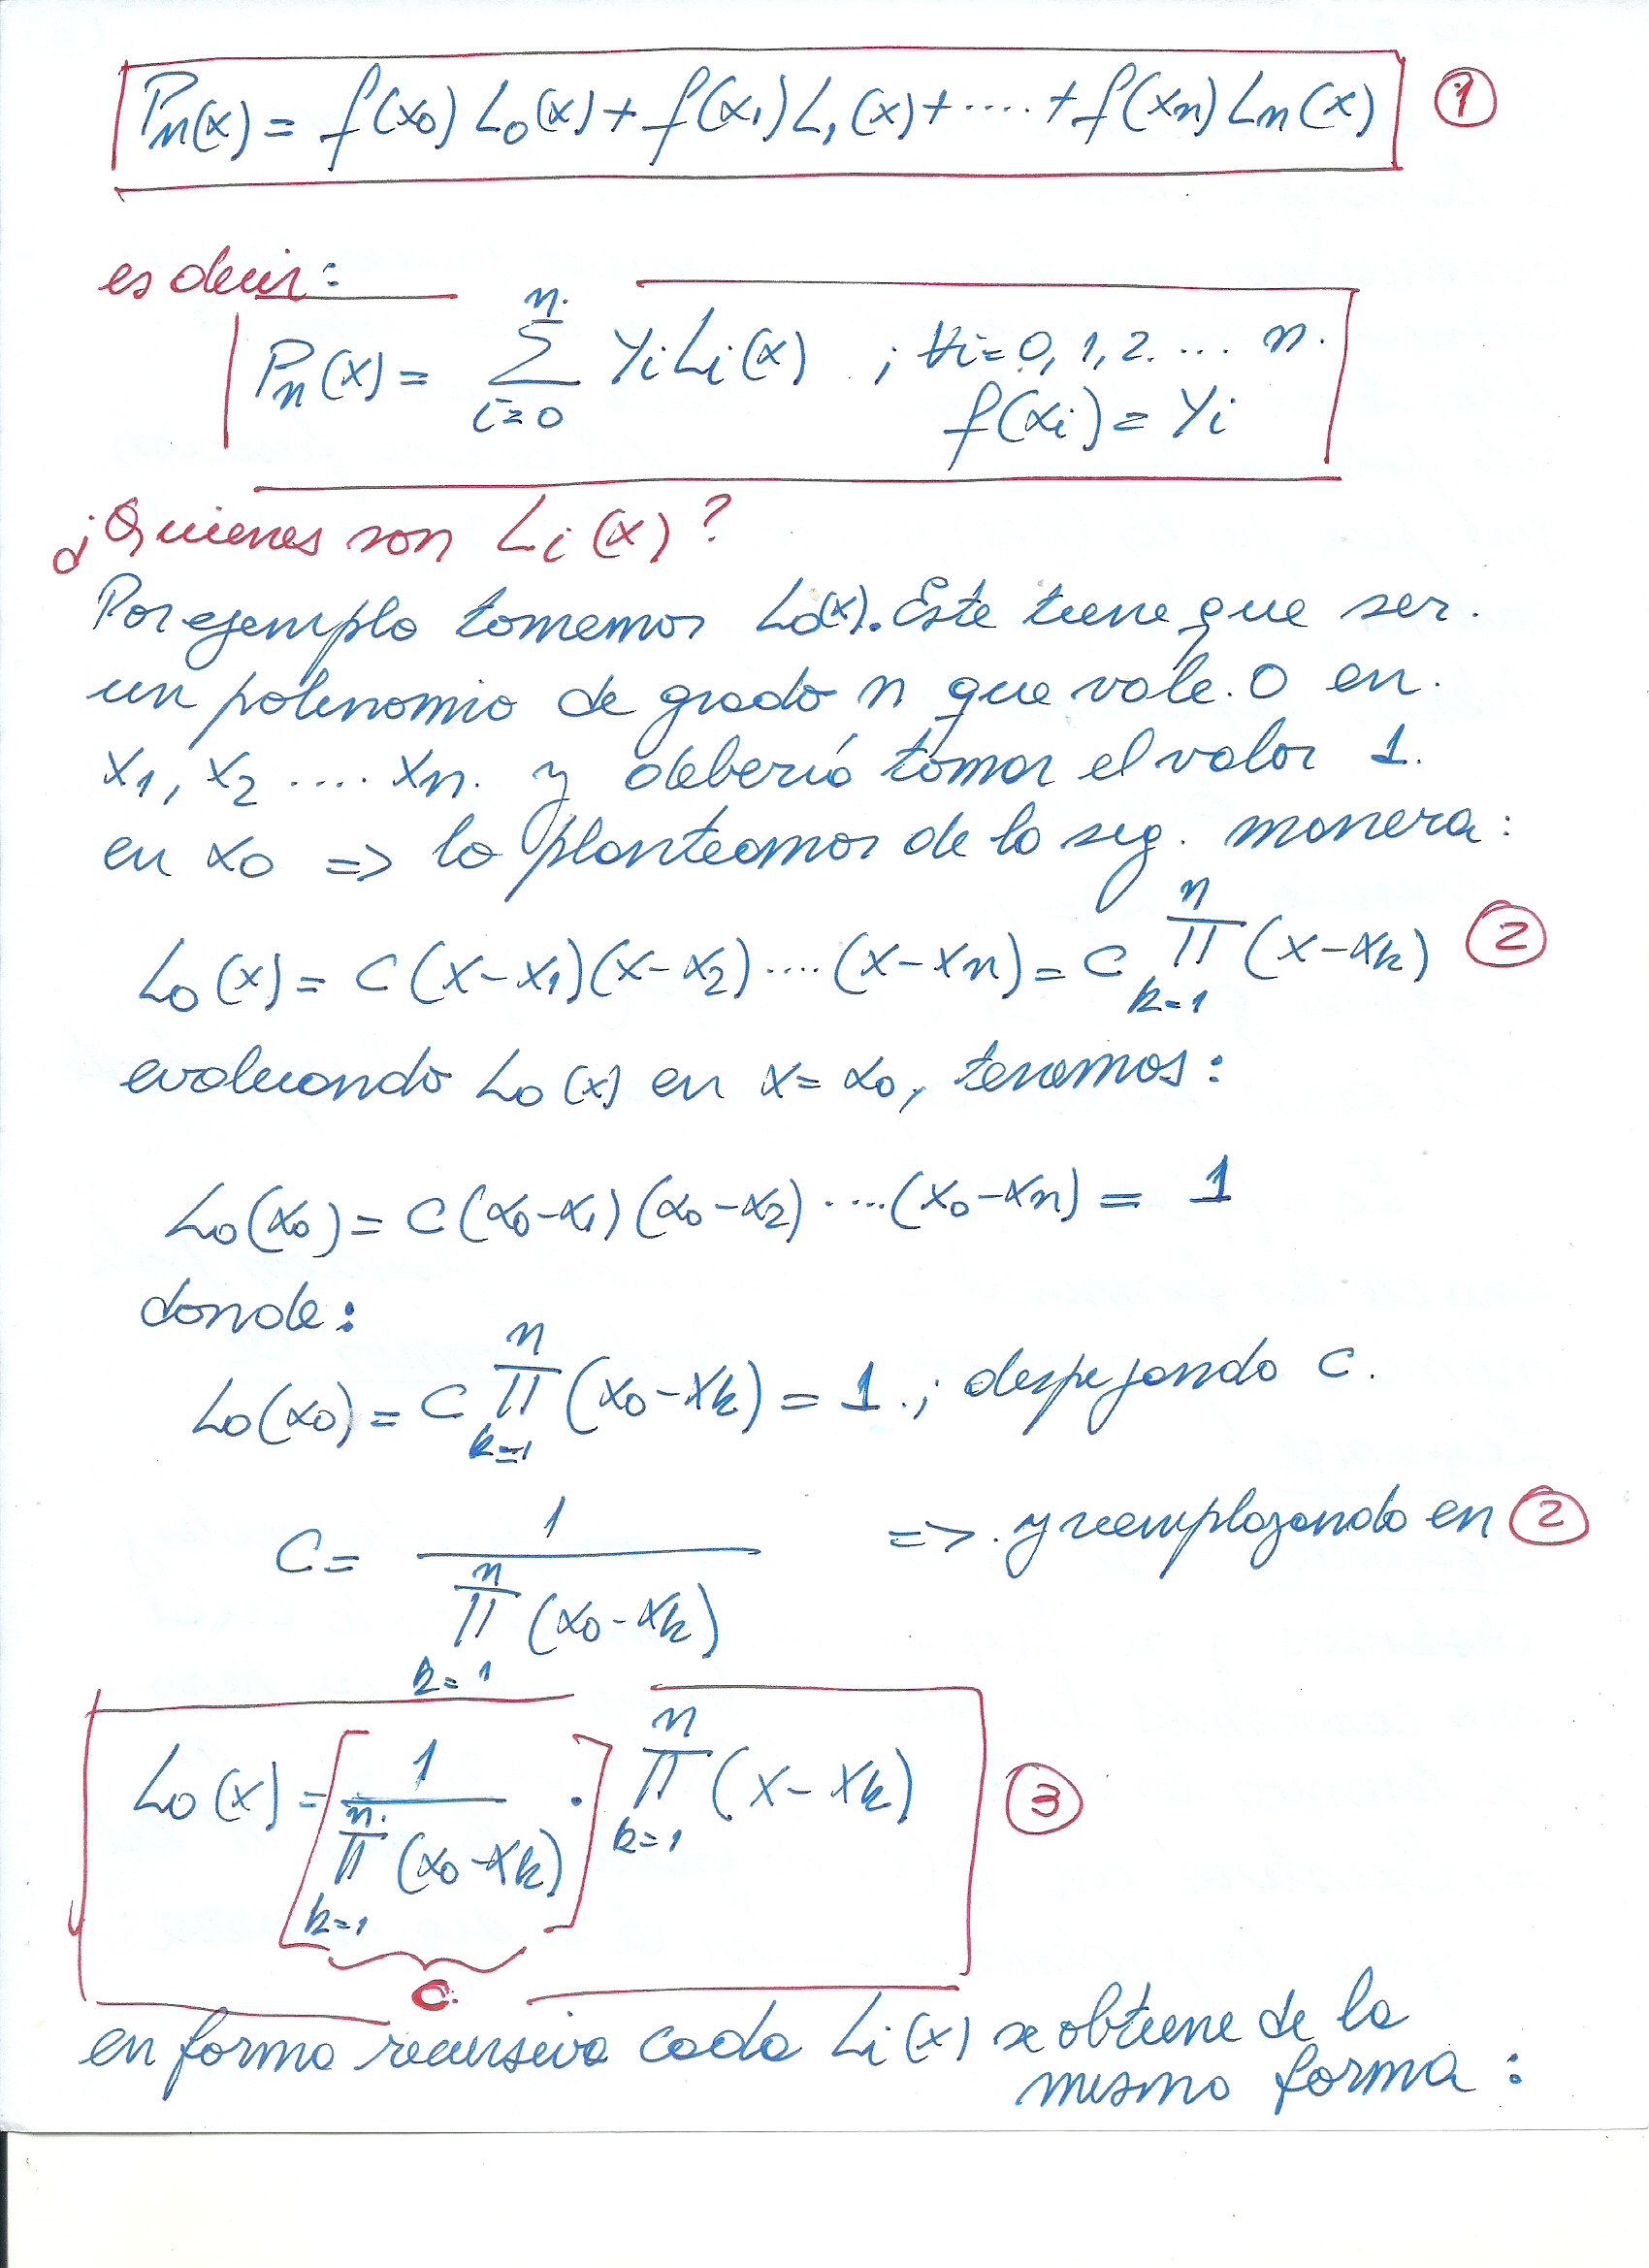 Pn(x) = f(x0) L0(x) + f(x1) L1(x) + .... + f(xn) Ln(x) ①
es decir:
Pn(x) = ∑_{i=0}^{n} yi Li(x) ; ∀i = 0, 1, 2. ... n.
f(xi) = yi
¿Quienes son Li(x)?
Por ejemplo tomemos L0(x). Este tiene que ser.
un polinomio de grado n que vale. 0 en.
x1, x2 .... xn. y debería tomar el valor 1.
en x0 => lo planteamos de la sig. manera:
L0(x) = C (x-x1)(x-x2) .... (x-xn) = C ∏_{k=1}^{n} (x-xk) ②
evaluando L0(x) en x = x0, tenemos:
L0(x0) = C (x0-x1) (x0-x2) ....(x0-xn) = 1
donde:
L0(x0) = C ∏_{k=1}^{n} (x0-xk) = 1. ; despejando C.
C = 1 / ∏_{k=1}^{n} (x0-xk) => . y reemplazando en ②
L0(x) = [1 / ∏_{k=1}^{n} (x0-xk) ·] ∏_{k=1}^{n} (x-xk) ③
C.
en forma recursiva cada Li(x) se obtiene de la
misma forma :